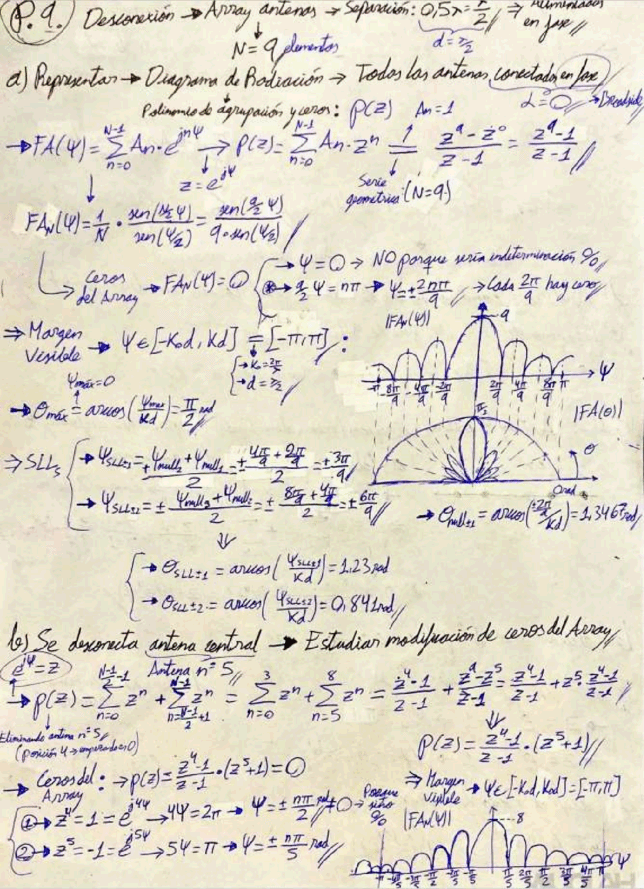 P.9. Desconexión → Array antenas → Separación: 0,5λ = λ/2 ⇒ Alimentadas en fase
d = λ/2
N = 9 elementos
a) Representar → Diagrama de Radiación → Todas las antenas conectadas en fase
α = 0 → Broadside
Polinomio de agrupación y ceros: p(z) An = 1
→ FA(Ψ) = Σ_{n=0}^{N-1} An · e^{jnΨ} → p(z) = Σ_{n=0}^{N-1} An · z^n = (z^9 - z^0)/(z - 1) = (z^9 - 1)/(z - 1)
z = e^{jΨ}
Serie geométrica (N=9)
FA_N(Ψ) = 1/N · sen(N/2 Ψ)/sen(Ψ/2) = sen(9/2 Ψ)/(9 · sen(Ψ/2))
Ceros del Array → FA_N(Ψ) = 0
→ Ψ = 0 → NO porque sería indeterminación 0/0
→ 9/2 Ψ = nπ → Ψ = ± 2nπ/9 → Cada 2π/9 hay cero
⇒ Margen Visible → Ψ ∈ [-K0d, Kd] = [-π, π] :
→ K0 = 2π/λ
→ d = λ/2
|FA_N(Ψ)| 9
-π -8π/9 -4π/9 -2π/9 2π/9 4π/9 8π/9 π Ψ
Ψmáx = 0
→ θmáx = arcos(Ψmax/Kd) = π/2 rad
π/2 |FA(θ)|
θ
0 rad
⇒ SLLs
→ Ψ_SLL±1 = ± (Ψnull2 + Ψnull1)/2 = ± (4π/9 + 2π/9)/2 = ± 3π/9
→ Ψ_SLL±2 = ± (Ψnull3 + Ψnull2)/2 = ± (8π/9 + 4π/9)/2 = ± 6π/9
→ θnull±1 = arcos(±2π/9 / Kd) = 1,3467 rad
→ θ_SLL±1 = arcos(Ψ_SLL±1/Kd) = 1,23 rad
→ θ_SLL±2 = arcos(Ψ_SLL±2/Kd) = 0,841 rad
b) Se desconecta antena central → Estudiar modificación de ceros del Array
e^{jΨ} = z
Antena nº 5
→ p(z) = Σ_{n=0}^{N-1/2 -1} z^n + Σ_{n=N-1/2 +1}^{N-1} z^n = Σ_{n=0}^{3} z^n + Σ_{n=5}^{8} z^n = (z^4 - 1)/(z - 1) + (z^9 - z^5)/(z - 1) = (z^4 - 1)/(z - 1) + z^5 · (z^4 - 1)/(z - 1)
Eliminando antena nº 5
(posición 4 → empezadas 0)
p(z) = (z^4 - 1)/(z - 1) · (z^5 + 1)
→ Ceros del Array : → p(z) = (z^4 - 1)/(z - 1) · (z^5 + 1) = 0
⇒ Margen Visible → Ψ ∈ [-K0d, K0d] = [-π, π]
① → z^4 = 1 = e^{j4Ψ} → 4Ψ = 2π → Ψ = ± nπ/2 rad ≠ 0 → Porque sino 0/0
② → z^5 = -1 = e^{j5Ψ} → 5Ψ = π → Ψ = ± nπ/5 rad
|FA_N(Ψ)| 8
Ψ